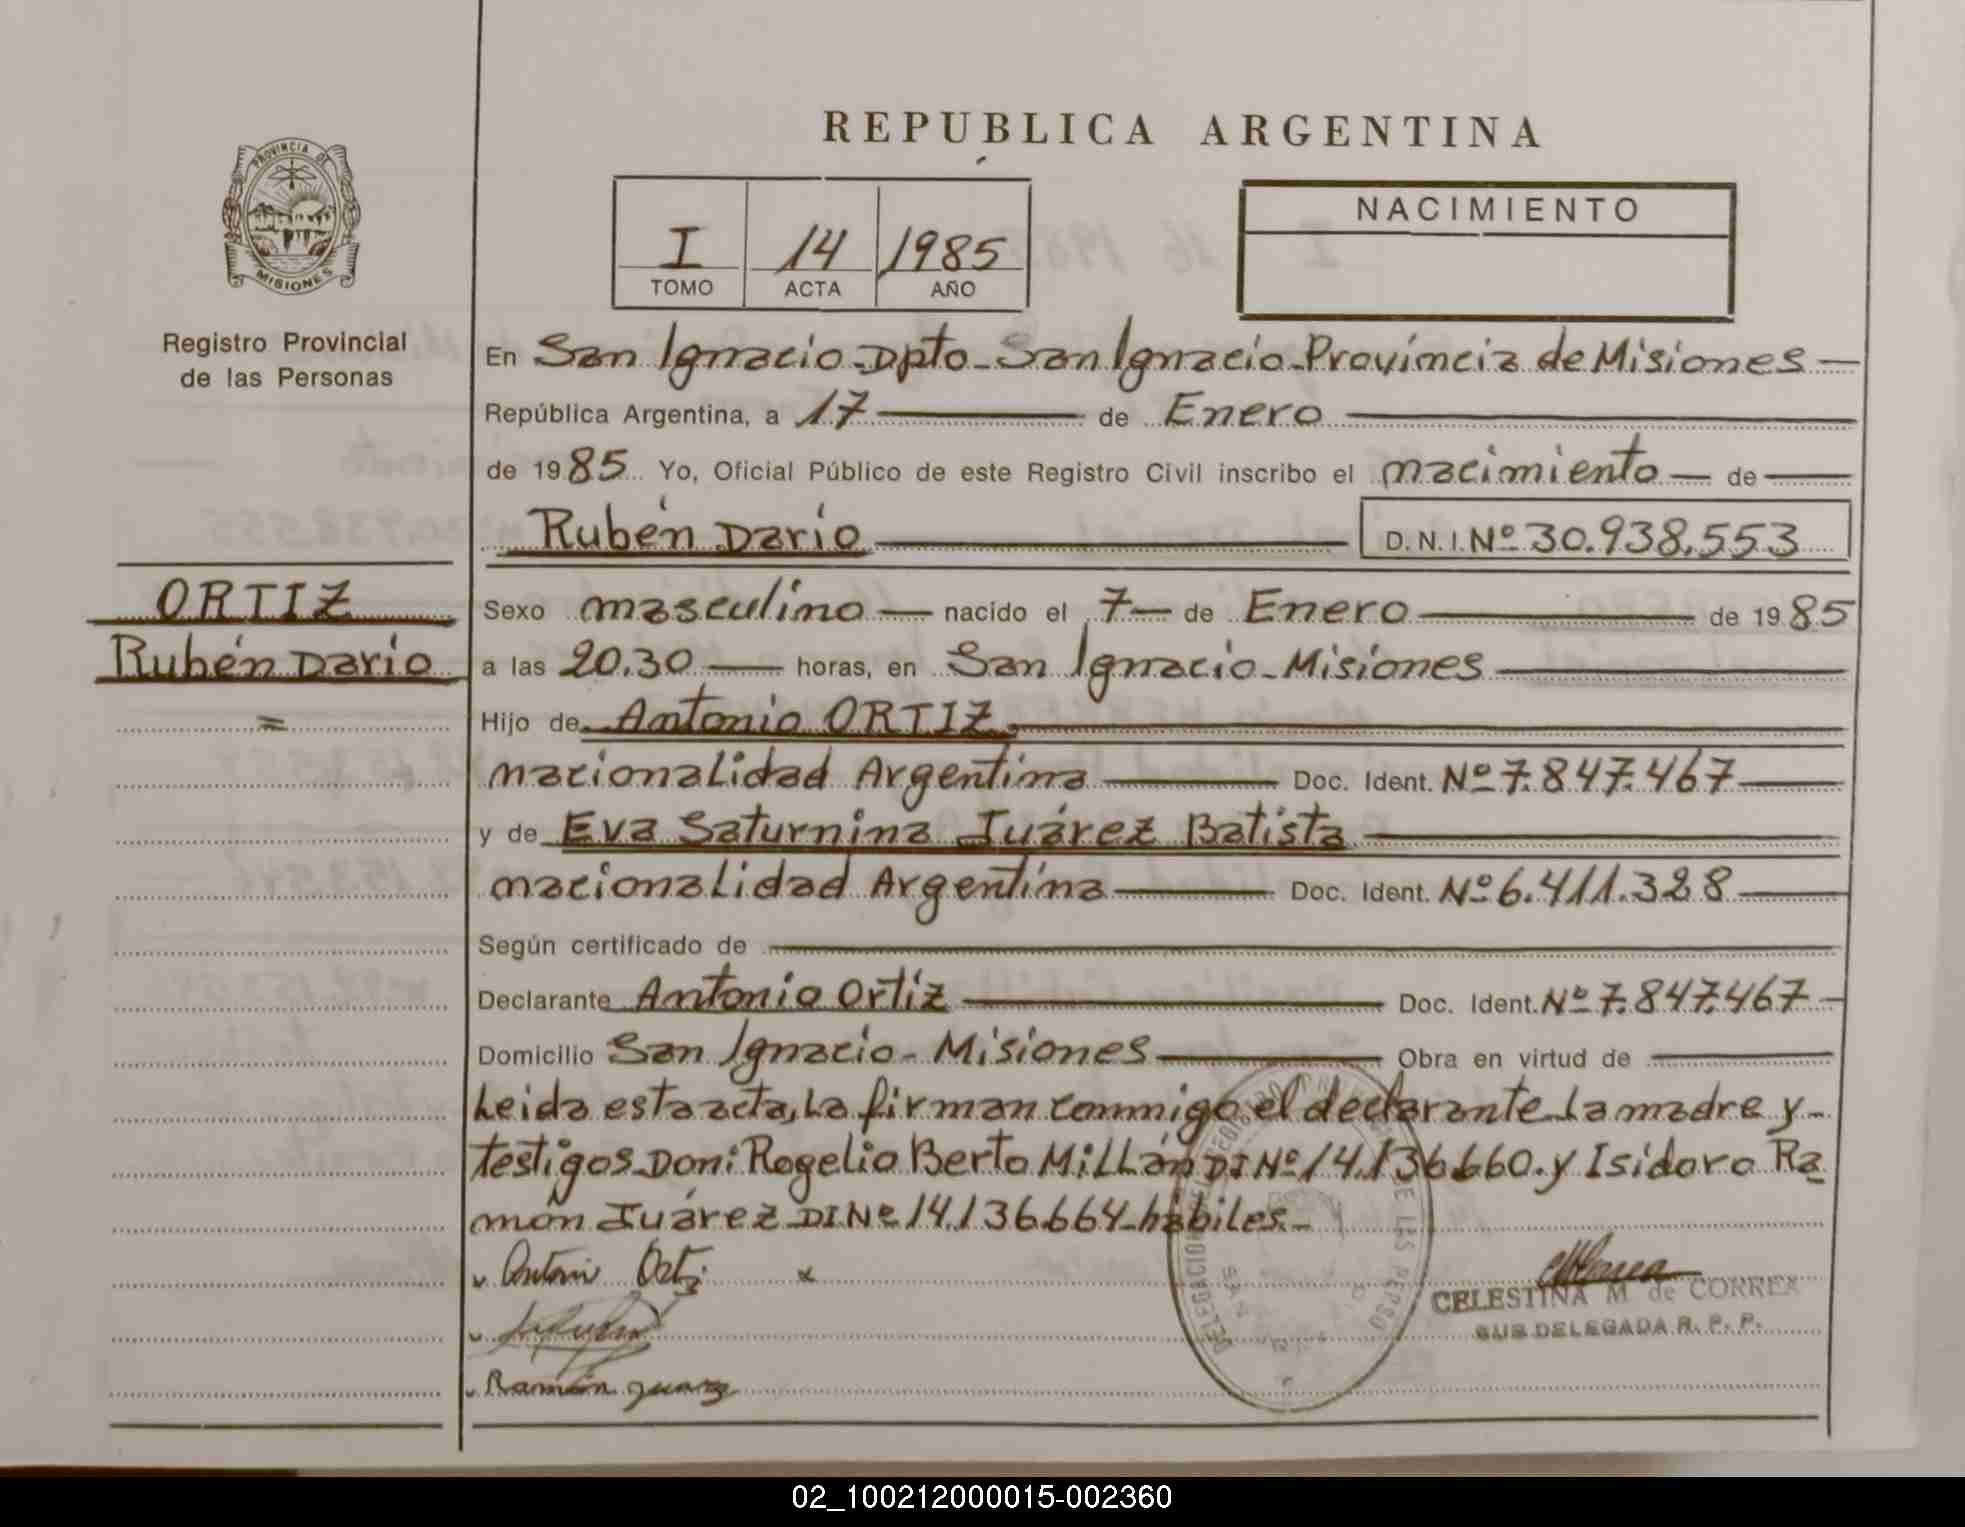 REPUBLICA ARGENTINA
PROVINCIA DE
MISIONES
Registro Provincial
de las Personas
I 14 1985
TOMO ACTA AÑO
NACIMIENTO
En San Ignacio-Dpto-San Ignacio-Provincia de Misiones
República Argentina, a 17 de Enero
de 1985 Yo, Oficial Público de este Registro Civil inscribo el nacimiento de
Rubén Darío D.N.I. Nº 30.938.553
ORTIZ
Rubén Darío
=
Sexo masculino nacido el 7 de Enero de 1985
a las 20.30 horas, en San Ignacio-Misiones
Hijo de Antonio ORTIZ
nacionalidad Argentina Doc. Ident. Nº 7.847.467
y de Eva Saturnina Juárez Batista
nacionalidad Argentina Doc. Ident. Nº 6.411.328
Según certificado de
Declarante Antonio Ortíz Doc. Ident. Nº 7.847.467
Domicilio San Ignacio-Misiones Obra en virtud de
Leida esta acta, La firman conmigo el declarante La madre y
testigos Don: Rogelio Berto Millán DI Nº 14.136.660. y Isidoro Ra
món Juárez DI Nº 14.136.664-hábiles.-
Antonio Ortiz x
Ramón Juarez
CELESTINA M de CORREA
SUB DELEGADA R. P. P.
02_100212000015-002360